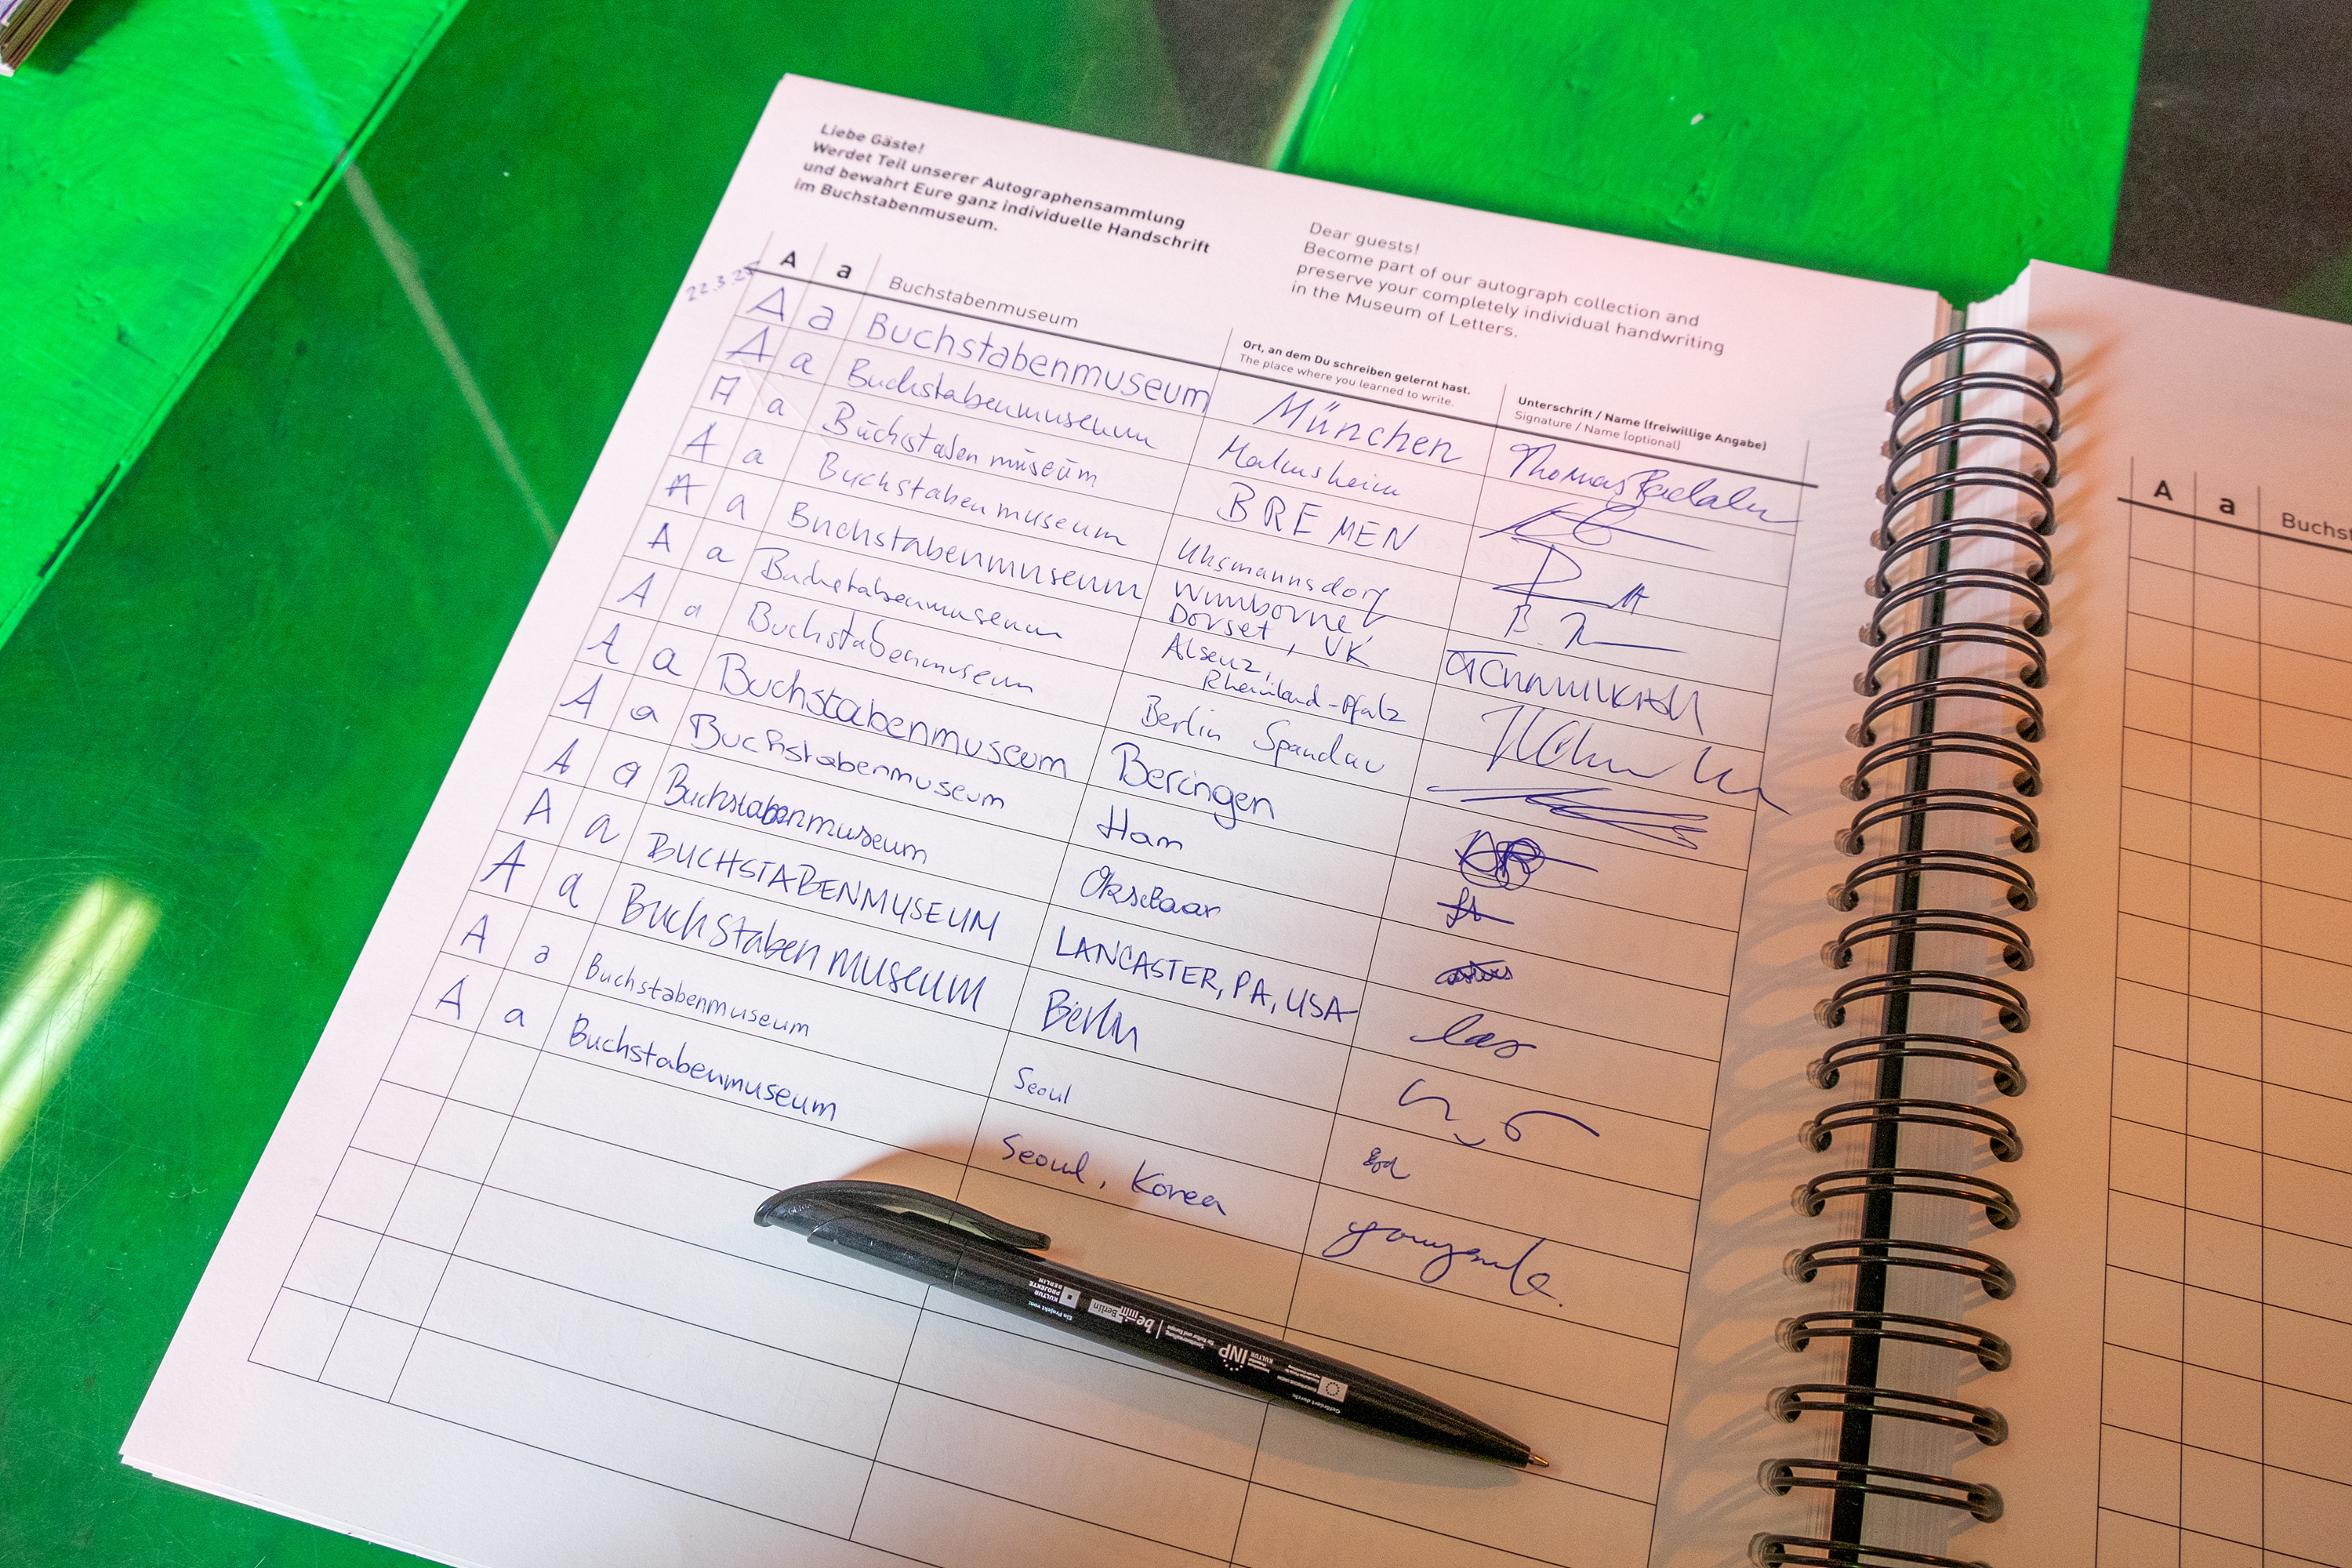 Liebe Gäste!
Werdet Teil unserer Autographensammlung
und bewahrt Eure ganz individuelle Handschrift
im Buchstabenmuseum.
Dear guests!
Become part of our autograph collection and
preserve your completely individual handwriting
in the Museum of Letters.
A a Buchstabenmuseum
Ort, an dem Du schreiben gelernt hast.
The place where you learned to write.
Unterschrift / Name (freiwillige Angabe)
Signature / Name (optional)
22.3.25
A a Buchstabenmuseum München Thomas
A a Buchstabenmuseum Malmsheim
A a Buchstaben museum BREMEN
A a Buchstaben museum
A a Buchstabenmuseum Wimborne
Dorset, UK
A a Buchstabenmuseum Alsenz,
Rheinland-Pfalz
A a Buchstabenmuseum Berlin Spandau
A a Buchstabenmuseum Beringen
A a Buchstabenmuseum Ham
A a Buchstabenmuseum
A a BUCHSTABENMUSEUM LANCASTER, PA, USA
A a Buchstaben museum Berlin
A a Buchstabenmuseum Seoul
A a Buchstabenmuseum Seoul, Korea
Gefördert durch:
INP
KULTUR
be Berlin
Ein Projekt von:
KULTUR
PROJEKTE
BERLIN
A a Buchst